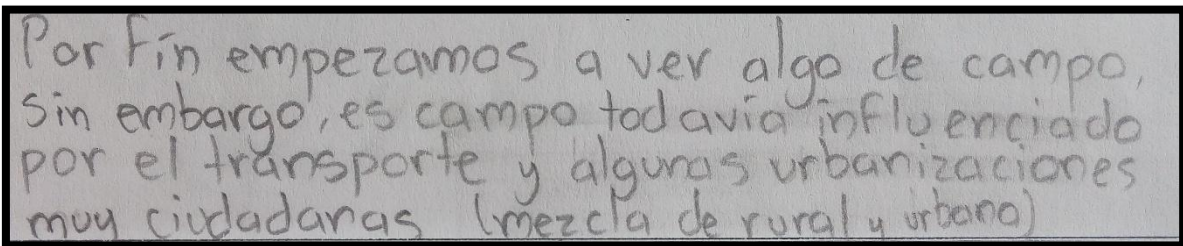 Por Fín empezamos a ver algo de campo,
sin embargo, es campo todavía influenciado
por el transporte y algunas urbanizaciones
muy ciudadanas (mezcla de rural y urbano)